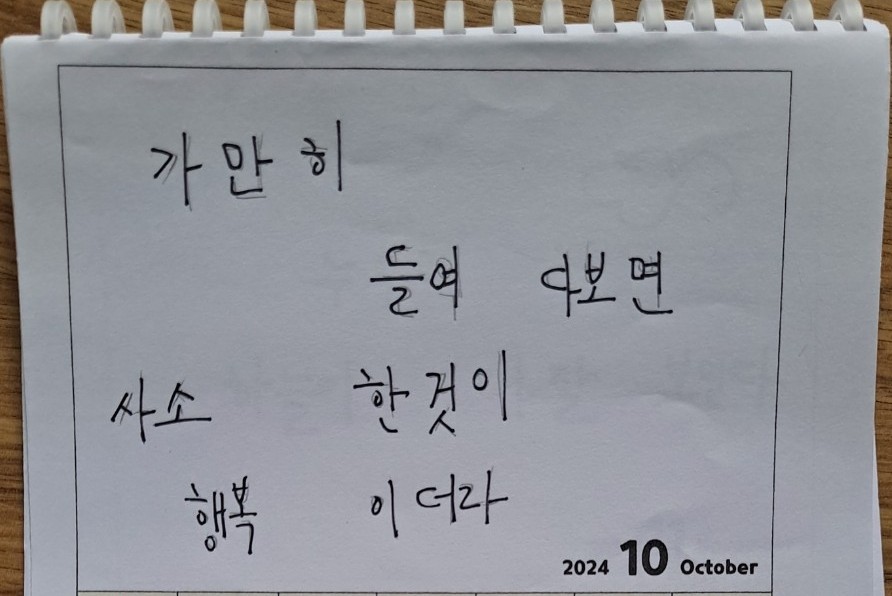 가만히
들여 다보면
사소 한것이
행복 이더라
2024 10 October